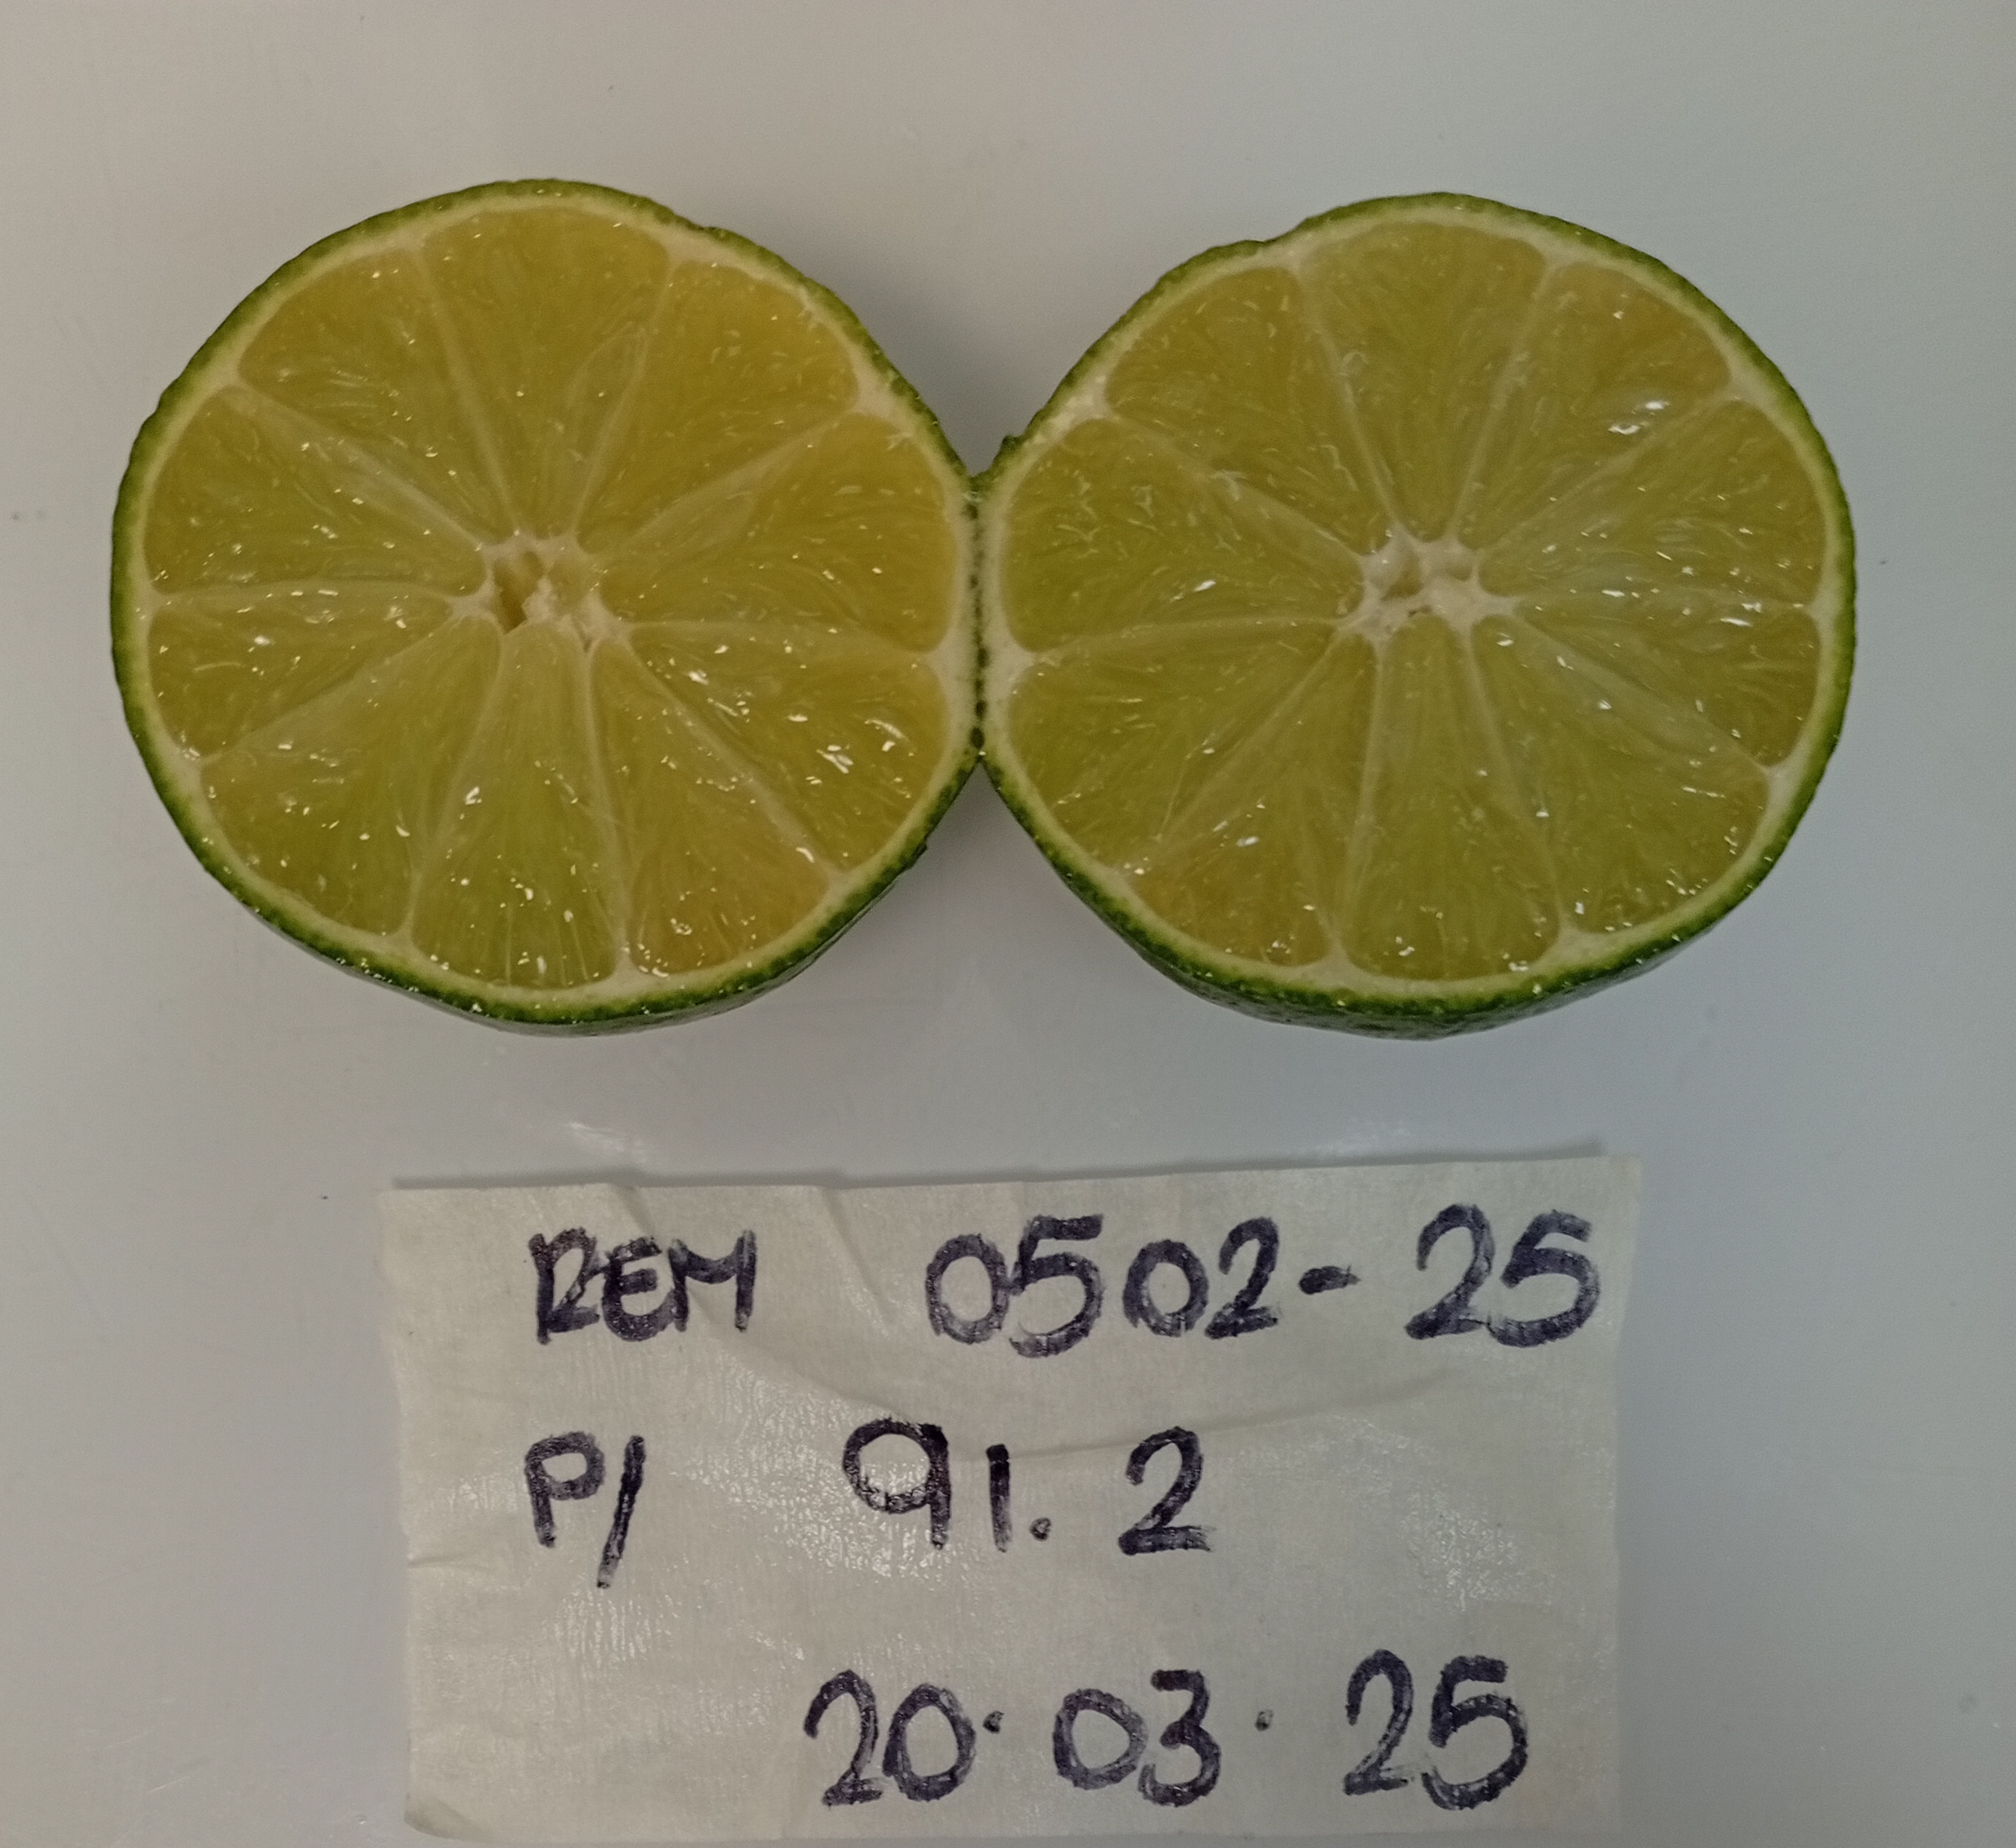 REM 0502-25
P/ 91.2
20.03.25